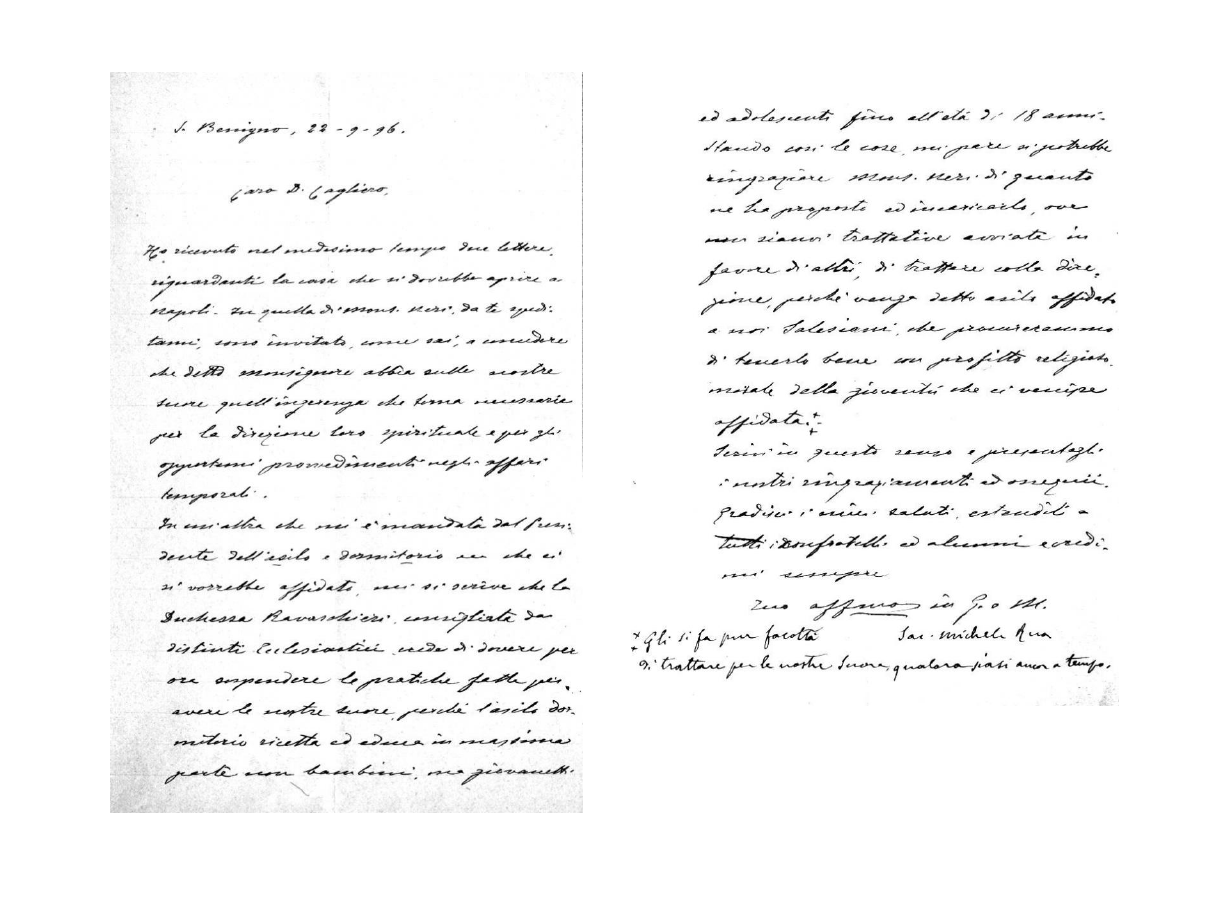 S. Benigno, 22-9-96.
Caro D. Cagliero,
Ho ricevuto nel medesimo tempo due lettere,
riguardanti la casa che si dovrebbe aprire a
Napoli. In quella di Mons. Neri, da te spedi-
tami, sono invitato, come sai, a concedere
che detto Monsignore abbia sulle nostre
suore quell'ingerenza che torna necessaria
per la direzione loro spirituale e per gli
opportuni provvedimenti negli affari
temporali.
In un'altra che mi è mandata dal Presi-
dente dell'asilo e dormitorio che ci
si vorrebbe affidato, mi si scrive che la
Duchessa Ravaschieri, consigliata da
distinti Ecclesiastici, crede di dovere per
ora sospendere le pratiche fatte per
avere le nostre suore, perché l'asilo dor-
mitorio ricetta ed educa in massima
parte non bambini, ma giovanetti
ed adolescenti fino all'età di 18 anni.
Stando così le cose, mi pare si potrebbe
ringraziare Mons. Neri di quanto
ne ha proposto ed incaricarlo, ove
non sianvi trattative avviate in
favore di altri, di trattare colla dire-
zione, perché venga detto asilo affidato
a noi Salesiani, che procureremmo
di tenerlo bene con profitto religioso,
morale della gioventù che ci venisse
affidata.‡
Scrivi in questo senso e presentagli
i nostri ringraziamenti ed ossequii.
Gradisci i miei saluti, estendili a
tutti i Confratelli ed alunni e credi-
mi sempre
Tuo affmo in G. e M.
Sac. Michele Rua
‡ Gli si fa pur facoltà
di trattare per le nostre Suore, qualora siasi ancor a tempo.